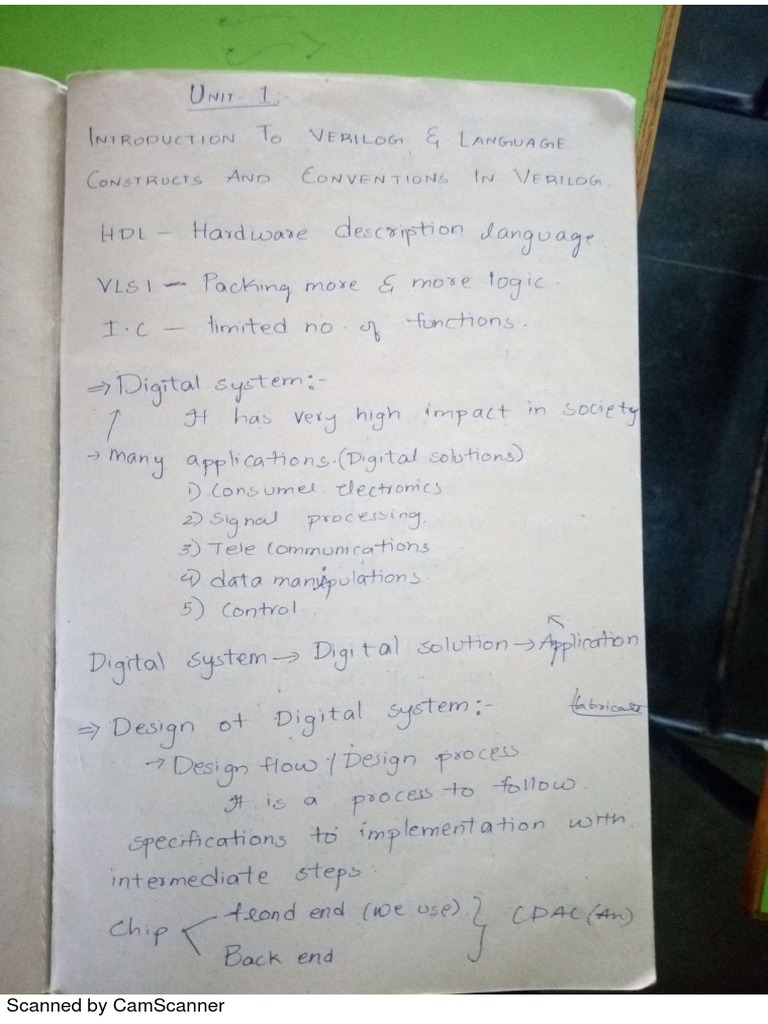 UNIT- 1:-
INTRODUCTION TO VERILOG & LANGUAGE
CONSTRUCTS AND CONVENTIONS IN VERILOG.
HDL - Hardware description language.
VLSI - Packing more & more logic.
I.C - limited no. of functions.
⇒ Digital system:-
It has very high impact in society
→ many applications.(Digital solutions)
1) Consumer electronics
2) Signal processing.
3) Tele communications
4) data manipulations.
5) Control.
Digital system → Digital solution → Application
⇒ Design of Digital system:-
→ Design flow / Design process
It is a process to follow.
specifications to implementation with
intermediate steps.
Chip
frond end (we use). } CDAC
Back end
Scanned by CamScanner